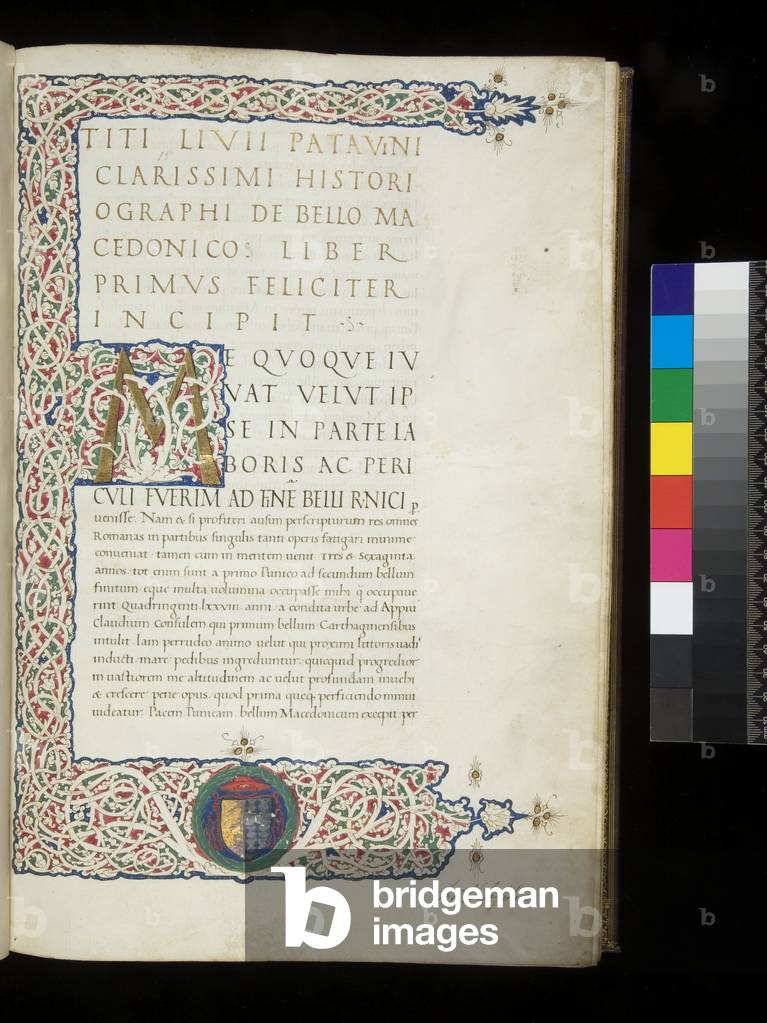 TITI LIVII PATAViNI
CLARISSIMI HISTORI
OGRAPHI DE BELLO MA
CEDONICO: LIBER
PRIMVS FELICITER
INCIPIT
ME QVOQVE IV
VAT VELVT IP
SE IN PARTE LA
BORIS AC PERI
CVLI FVERIM AD FINE BELLI PVNICI p
uenisse. Nam & si profiteri ausum perscripturum res omnes
Romanas in partibus singulis tanti operis fatigari minime
conueniat: tamen cum in mentem uenit tres & Sexaginta
annos: tot enim sunt a primo Punico ad secundum bellum
finitum: eque multa uolumina occupasse mihi q̃ occupaue
rint Quadringenti lxxviii anni: a condita urbe ad Appiũ
Claudium Consulem qui primum bellum Carthaginensibus
intulit. Iam peruideo animo uelut qui proximi littoris uadis
inducti mare pedibus ingrediuntur: quicquid progredior
in uastiorem me altitudinem ac uelut profundum inuehi
& crescere pene opus. quod prima queq; perficiendo minui
uideatur. Pacem Punicam bellum Macedonicum excepit: per
b bridgeman
images